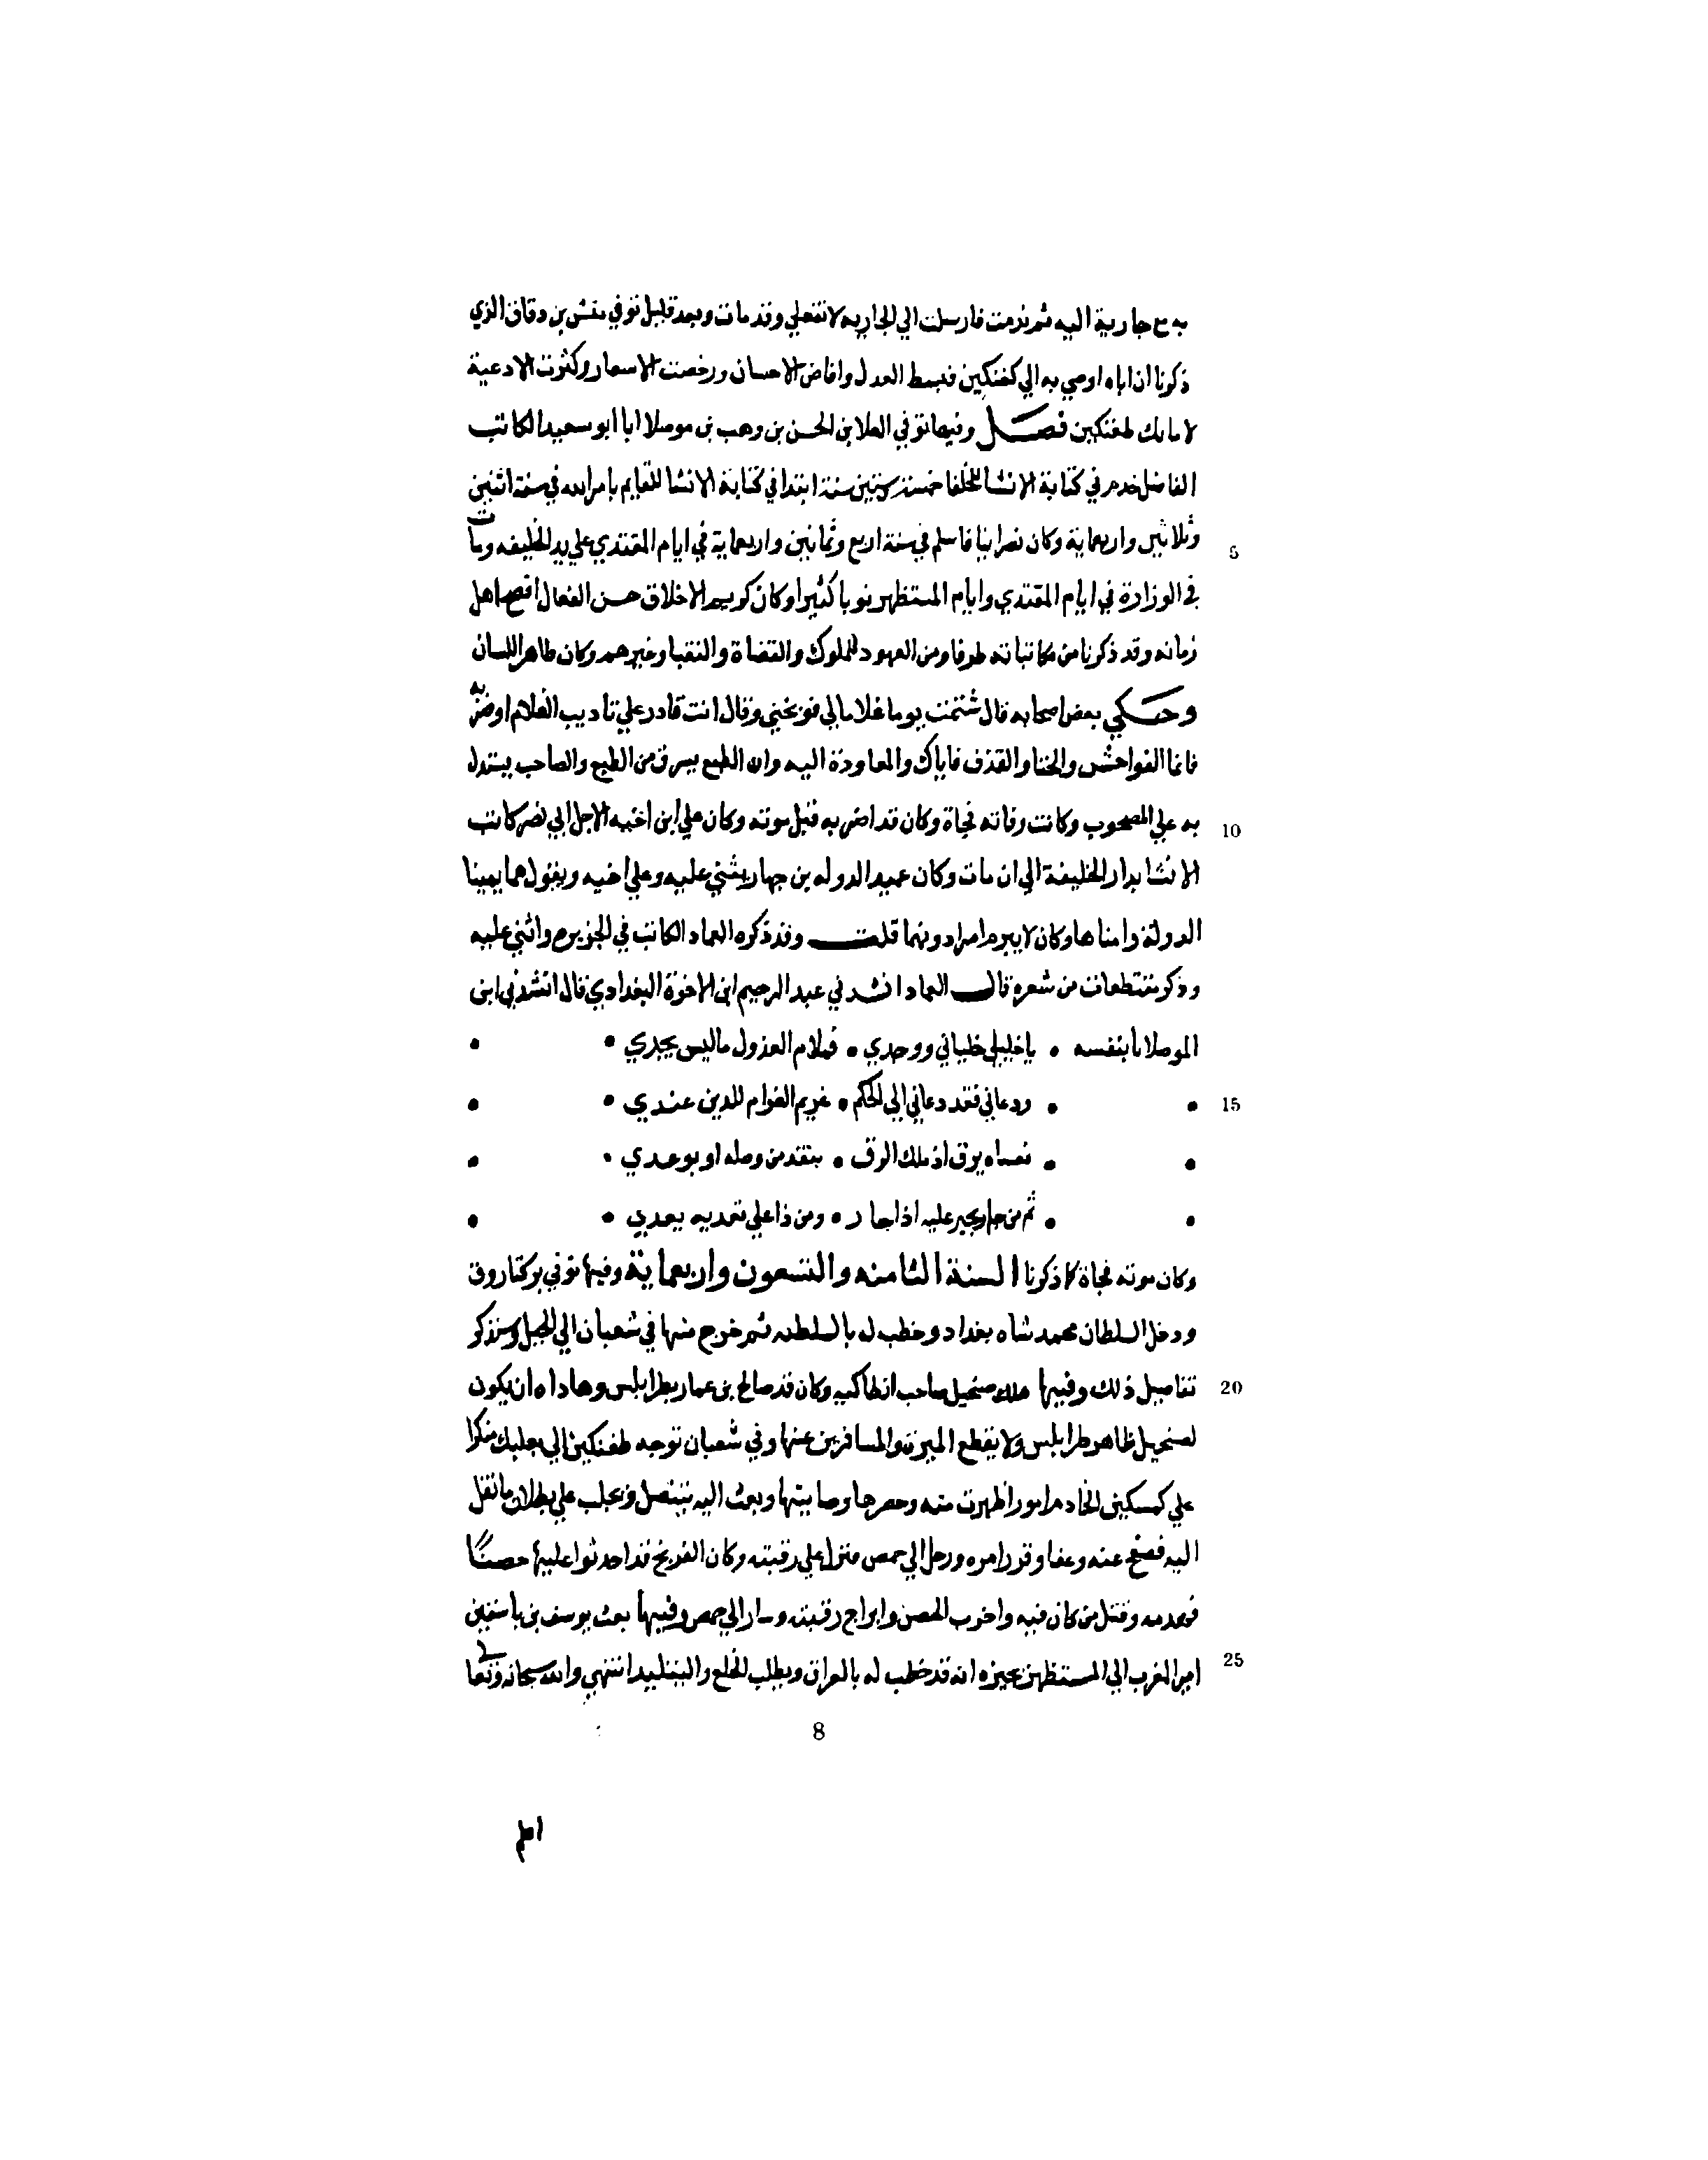 به مع جارية اليه ثم ندمت فارسلت الي الجاريه لا تفعلي وقد مات وبعد قليل توفي متش بن دقاق الذي
ذكرنا ان اباه اوصي به الي كفتكين فبسط العدل وافاض الاحسان ورخصت الاسعار وكثرت الادعية
لاتابك طغتكين فصل وفيها توفي العلا بن الحسن بن وهب بن موصلايا ابو سعيد الكاتب
الفاضل خدم في كتابة الانشا للخلفا خمسة وستين سنة ابتدا في كتابة الانشا للقايم بامر الله في سنة اثنين
وثلاثين واربعماية وكان نصرانيا فاسلم في سنة اربع وثمانين واربعماية في ايام المقتدي علي يد الخليفه وناب
في الوزارة في ايام المقتدي وايام المستظهر نوبا كثيرا وكان كريم الاخلاق حسن الفعال افصح اهل
زمانه وقد ذكرنا من مكاتباته طرفا ومن العهود للملوك والقضاة والنقبا وغيرهم وكان طاهر اللسان
وحكي بعض اصحابه قال شتمت يوما غلاما لي فوبخني وقال انت قادر علي تاديب الغلام او ضربه
فاما الفواحش والخنا والقذف فاياك والمعاودة اليه وان الطبع يسرق من الطبع والصاحب يستدل
به علي المصحوب وكانت وفاته فجاة وكان قد اضر به قبل موته وكان علي ابن اخيه الاجل ابي نصر كاتب
الانشا بدار الخليفة الي ان مات وكان عميد الدوله بن جهار يثني عليه وعلي اخيه ويقول هما يمينا
الدولة وامناها وكان لا يبرم امرا دونهما قلت وقد ذكره العماد الكاتب في الخزيرم واثني عليه
وذكر مقتطعات من شعره قال العماد انشدني عبد الرحيم ابن الاخوة البغدادي قال انشدني ابن
الموصلايا بنفسه • يا خليلي خلياني ووجدي • فملام العذول ما ليس يجدي • •
• • ودعاني فقد دعاني الي الحكم • غريم الغرام للدين عندي • •
• • فعساه يرق اذ ملك الرق • بنقد من وصله او بوعدي • •
• • ثم من جار يجير عليه اذا جار • ومن ذا علي تعديه يعدي • •
وكان موته فجاة كما ذكرنا السنة الثامنه والتسعون واربعماية وفيها توفي بركتاروق
ودخل السلطان محمد شاه بغداد وخطب له بالسلطنه ثم خرج منها في شعبان الي الجبل وسنذكر
تفاصيل ذلك وفيها هلك صنجيل صاحب انطاكيه وكان قد صالح بن عمار بطرابلس وهاداه ان يكون
لصنجيل ظاهر طرابلس ولا يقطع الميرة والمسافرين عنها وفي شعبان توجه طغتكين الي بعلبك منكرا
علي كمستكين الخادم امور اظهرت منه وحصرها وضايقها وبعث اليه يتنصل ويحلف علي بطلان ما نقل
اليه فصفح عنه وعفا وقرر امره ورحل الي حمص فنزل علي رقبته وكان الفرنج قد احدثوا عليها حصنًا
فهدمه وقتل من كان فيه واخرب الحصن وابراج رقبته وسار الي حمص وفيها بعث يوسف بن تاشفين
امير المغرب الي المستظهر يخبره انه قد خطب له بالعراق ويطلب الخلع والتقليد انتهي والله سبحانه وتعالي
5
10
15
20
25
8